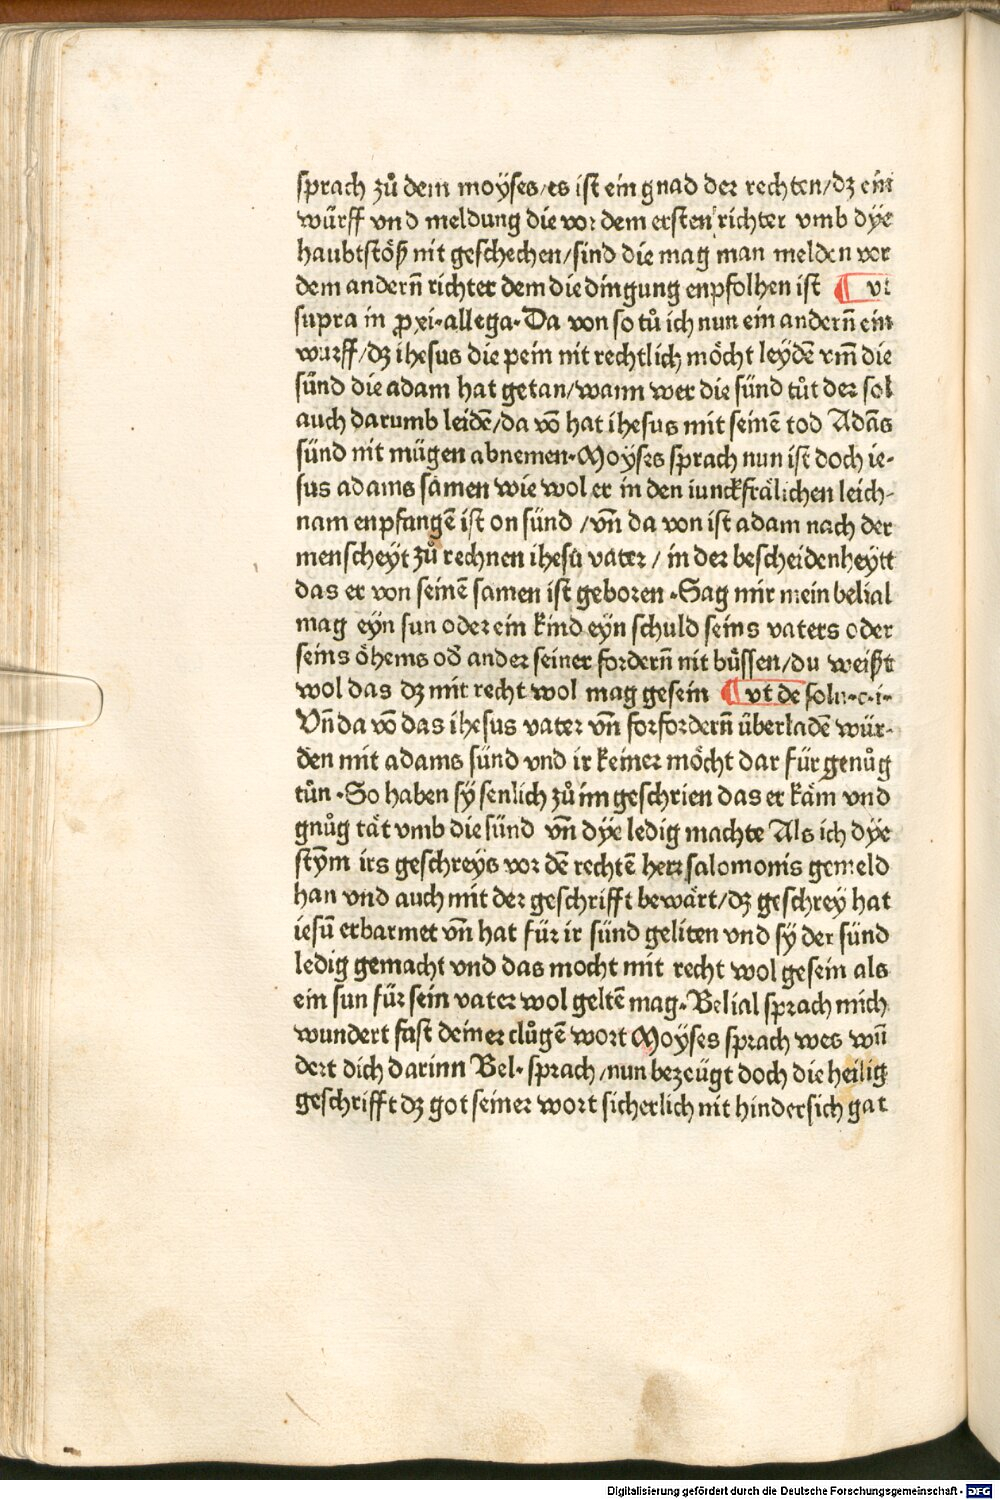 sprach zů dem moÿses/es ist ein gnad der rechten/dz ein
würff vnd meldung die vor dem ersten richter vmb dÿe
haubtstöß nit geschechen/sind die mag man melden vor
dem andern̄ richter dem die dingung enpfolhen ist ¶ vt
supra in ꝓxi·allega·Da von so tů ich nun ein andern̄ ein
wurff/dz ihesus die pein nit rechtlich möcht leydē vm̄ die
sünd die adam hat getan/wann wer die sünd tůt der sol
auch darumb leidē/da vō hat ihesus mit seinē tod Adās
sünd nit mügen abnemen·Moÿses sprach nun ist doch ie-
sus adams sämen wie wol er in den iunckfrälichen leich-
nam enpfangē ist on sünd /vn̄ da von ist adam nach der
menscheÿt zů rechnen ihesu vater/ in der bescheidenheÿtt
das er von seinē samen ist geboren·Sag mir mein belial
mag eÿn sun oder ein kind eÿn schuld seins vaters oder
seins öhems od̄ ander seiner fordern̄ nit bůssen/du weißt
wol das dz mit recht wol mag gesein ¶ vt de solu·c·i·
Vn̄ da vō das ihesus vater vn̄ forfordern̄ überladē wür-
den mit adams sünd vnd ir keiner möcht dar für genůg
tůn·So haben sÿ senlich zů im geschrien das er käm vnd
gnůg tät vmb die sünd vn̄ dÿe ledig machte Als ich dÿe
stÿm irs geschreÿs vor dē rechtē herr salomonis gemeld
han vnd auch mit der geschrifft bewärt/dz geschreÿ hat
iesū erbarmet vn̄ hat für ir sünd geliten vnd sÿ der sünd
ledig gemacht vnd das mocht mit recht wol gesein als
ein sun für sein vater wol geltē mag·Belial sprach mich
wundert fast deiner clůgē wort Moÿses sprach wes wū
dert dich darinn Bel·sprach/nun bezeügt doch die heilig
geschrifft dz got seiner wort sicherlich nit hindersich gat
Digitalisierung gefördert durch die Deutsche Forschungsgemeinschaft - DFG